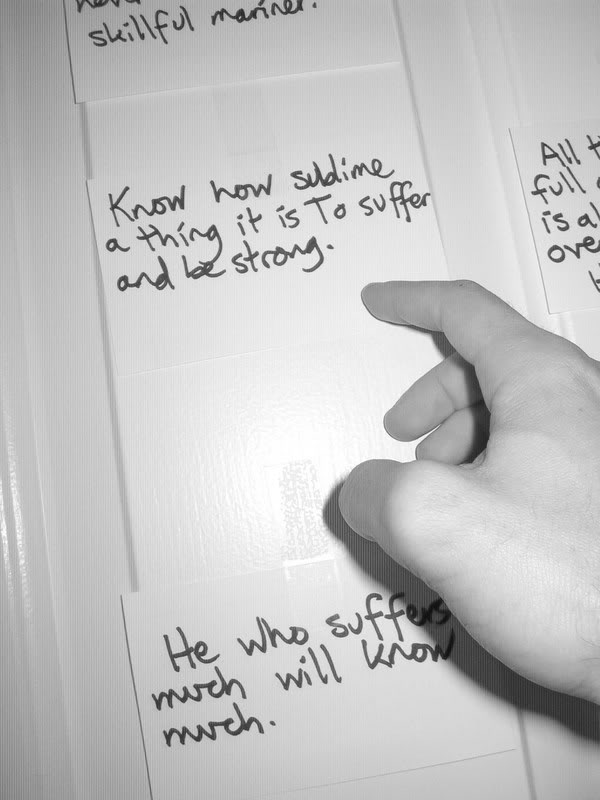 skillful manner.
Know how sublime
a thing it is To suffer
and be strong.
All
full
is al
over
He who suffers
much will know
much.